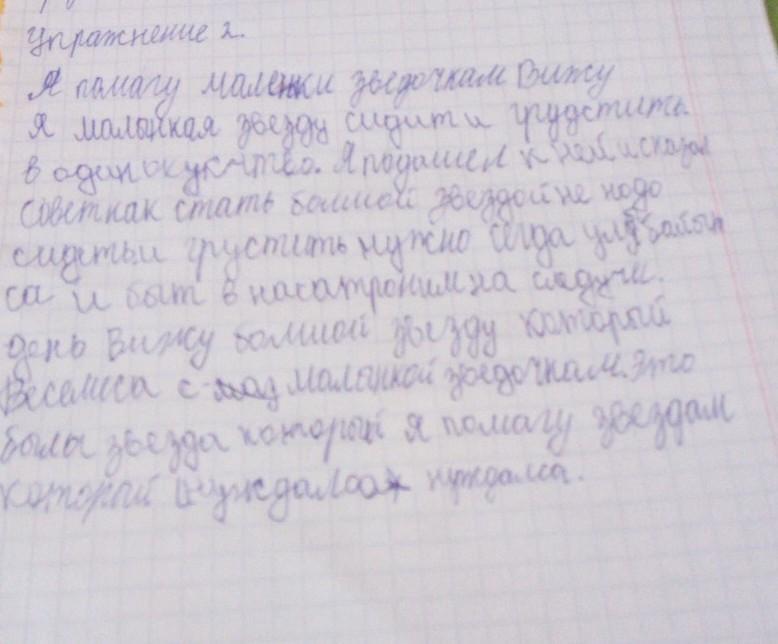 Упражнение 2.
Я помагу маленки зведочкам Вижу
я малонкая звезду сидит и грудстить
в одинокукство. Я подашел к ней и сказал
совет как стать болшой звездой не надо
сидеть и грустить нужно сегда
са и быт в насатроним на следучи.
день Вижу болшой звезду каторый
веселиса с малонкой зведочкам. Это
болы звезда каторый я помагу звездам
каторый нуждалса.